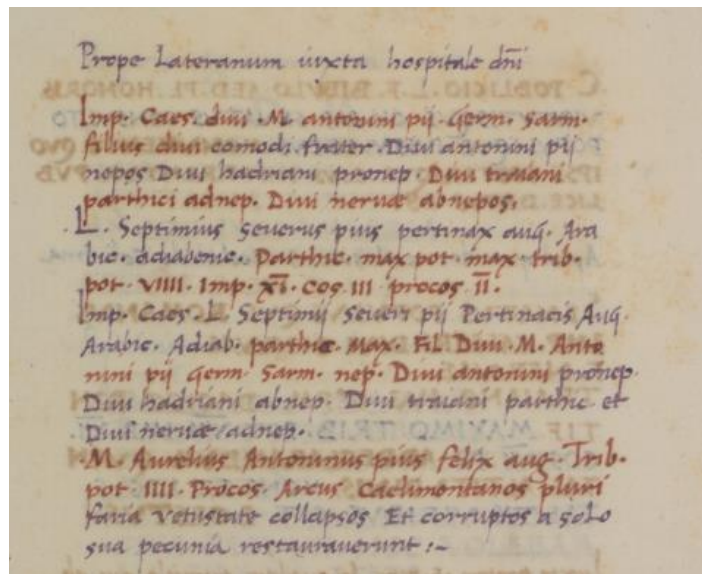 Prope Lateranum iuxta hospitale dñi
Imp. Caes. divi. M. antonini pij. Germ. Sarm.
filius divi comodi frater. Divi antonini pij
nepos Divi hadriani pronep. Divi traiani
parthici adnep. Divi nervæ abnepos.
L. Septimius Severus pius pertinax aug. Ara
bic. adiabenic. Parthic. max pot. max. trib.
pot. VIIII. Imp. XI. Cos III. procos II.
Imp. Caes. L. Septimij Severi pij Pertinacis Aug.
Arabic. Adiab. parthic. Max. Fil Divi. M. Anto
nini pij Germ. Sarm. nep. Divi antonini pronep
Divi hadriani abnep. Divi traiani parthic et
Divi nervæ adnep.
M. Aurelius Antoninus pius felix aug. Trib.
pot. IIII. Procos. Arcus Caelimontanos pluri
faria vetustate collapsos Et corruptos a solo
sua pecunia restauraverunt :~